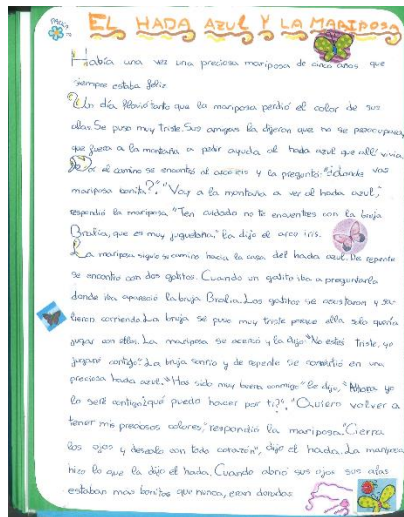 EL HADA AZUL Y LA MARIPOSA
Había una vez una preciosa mariposa de cinco años que
siempre estaba feliz.
Un día llovió tanto que la mariposa perdió el color de sus
alas. Se puso muy triste. Sus amigas la dijeron que no se preocupara,
que fuera a la montaña a pedir ayuda al hada azul que allí vivía.
Por el camino se encontró al arco iris y la preguntó: "¿donde vas
mariposa bonita?". "Voy a la montaña a ver al hada azul",
respondió la mariposa. "Ten cuidado no te encuentres con la bruja
Bralia, que es muy juguetona," la dijo el arco iris.
La mariposa siguió su camino hacia la casa del hada azul. De repente
se encontró con dos gatitos. Cuando un gatito iba a preguntarla
donde iba apareció la bruja Bralia. Los gatitos se asustaron y sa-
lieron corriendo. La bruja se puso muy triste porque ella solo quería
jugar con ellos. La mariposa se acercó y la dijo "No estes triste, yo
jugaré contigo". La bruja sonrio y de repente se convirtió en una
preciosa hada azul. "Has sido muy buena conmigo" le dijo, "Ahora yo
lo seré contigo ¿qué puedo hacer por ti?". "Quiero volver a
tener mis preciosos colores," respondió la mariposa. "Cierra
los ojos y desealo con todo corazón", dijo el hada. La mariposa
hizo lo que la dijo el hada. Cuando abrió sus ojos sus alas
estaban más bonitas que nunca, eran doradas